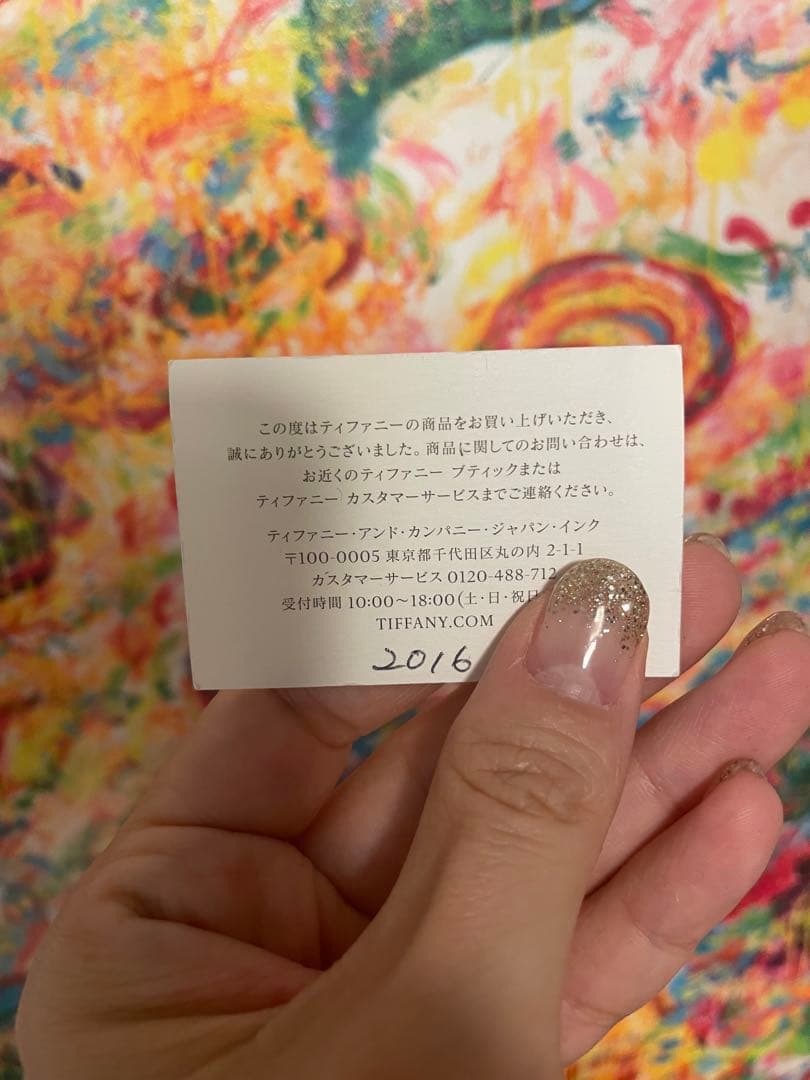 この度はティファニーの商品をお買い上げいただき、
誠にありがとうございました。商品に関してのお問い合わせは、
お近くのティファニー ブティックまたは
ティファニー カスタマーサービスまでご連絡ください。
ティファニー・アンド・カンパニー・ジャパン・インク
〒100-0005 東京都千代田区丸の内 2-1-1
カスタマーサービス 0120-488-712
受付時間 10:00〜18:00(土・日・祝日
TIFFANY.COM
2016